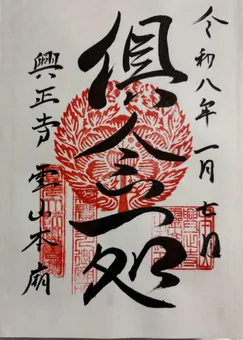 令和八年一月七日
倶会一処
興正寺霊山本廟